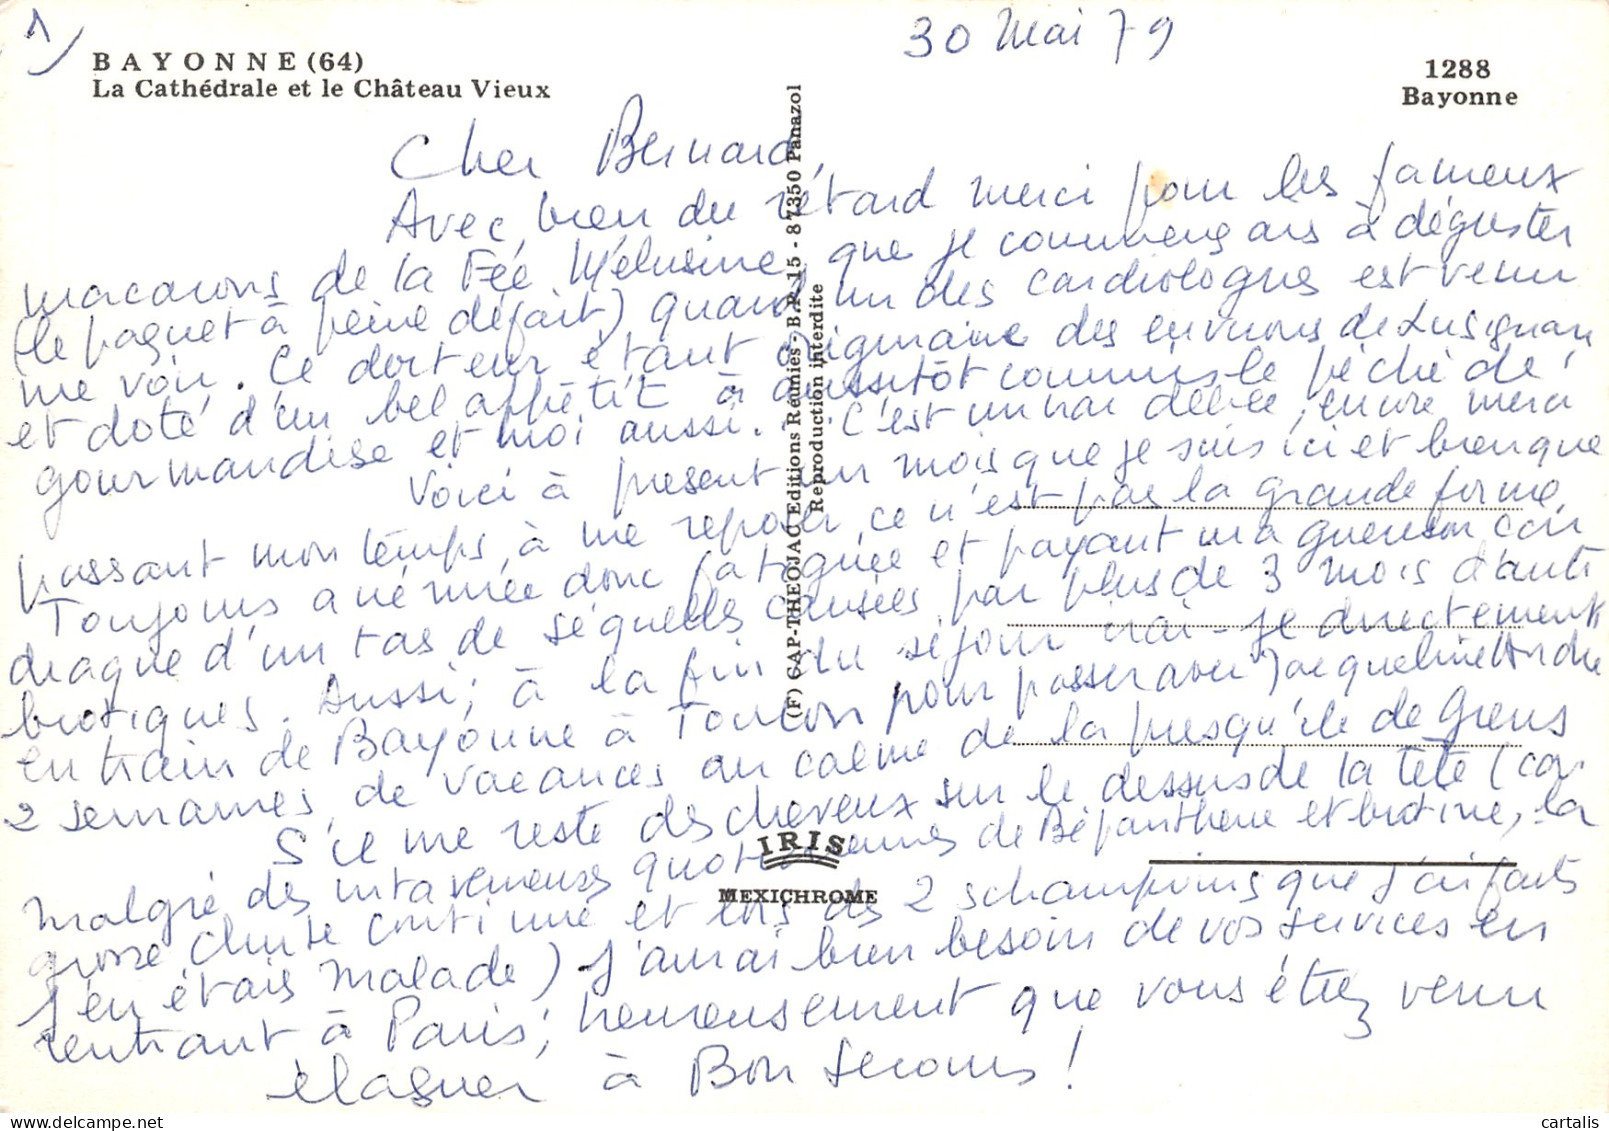 1/
30 Mai 79
BAYONNE (64)
La Cathédrale et le Château Vieux
1288
Bayonne
Cher Bernard,
Avec bien du rétard merci pour les fameux
macarons de la Fée Mélusine, que je commençais à déguster
(le paquet à peine défait) quand un des cardiologues est venu
me voir. Ce docteur étant originaire des environs de Lusignan
et doté d'un bel appétit a aussitôt commis le péché de
gourmandise et moi aussi. C'est un vrai délice, encore merci
Voici à présent un mois que je suis ici et bien que
passant mon temps à me reposer ce n'est pas la grande forme
Toujours anémiée donc fatiguée et payant ma guérison coin
dragne d'un tas de séquelles causées par plus de 3 mois d'anti
biotiques. Aussi, à la fin du séjour irai-je directement
en train de Bayonne à Toulon pour passer avec Jacqueline André
2 semaines de vacances au calme de la presqu'île de Giens
S'il me reste des cheveux sur le dessus de la tête (car
malgré des intraveineuses quotidiennes de Bépanthene et biotine, la
grosse chute continue et lors de 2 schampoings que j'ai faits
j'en étais malade) j'aurai bien besoin de vos services en
rentrant à Paris; heureusement que vous étiez venu
élaguer à Bon Secours!
(F) CAP-THEOJAC Editions Réunies - B.P. 15 - 87350 Panazol
Reproduction interdite
IRIS
MEXICHROME
cartalis